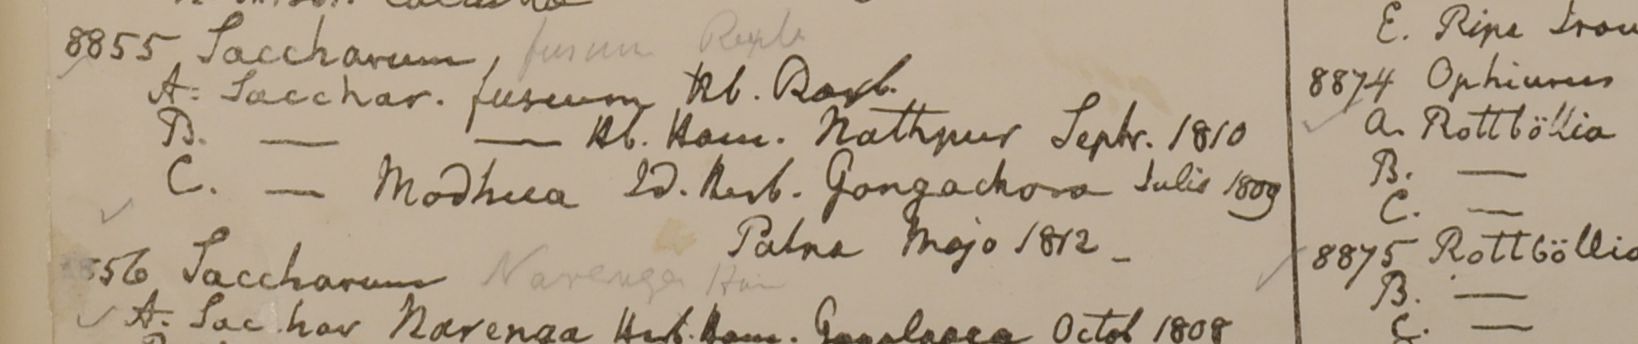 8855 Saccharum, fuscum Roxb
A. Sacchar. fuscum Hb. Roxb.
B. — — Hb. Ham. Nathpur Septr. 1810
C. — Modhua Id. Herb. Gongachora Julio 1809
Patna Majo 1812 -
856 Saccharum Narenga Ham
A. Sac har Narenga Herb. Ham. Octob 1808
E. Ripa
8874 Ophiurus
a. Rottböllia
B. —
C. —
8875 Rottböllia
B. —
C. —